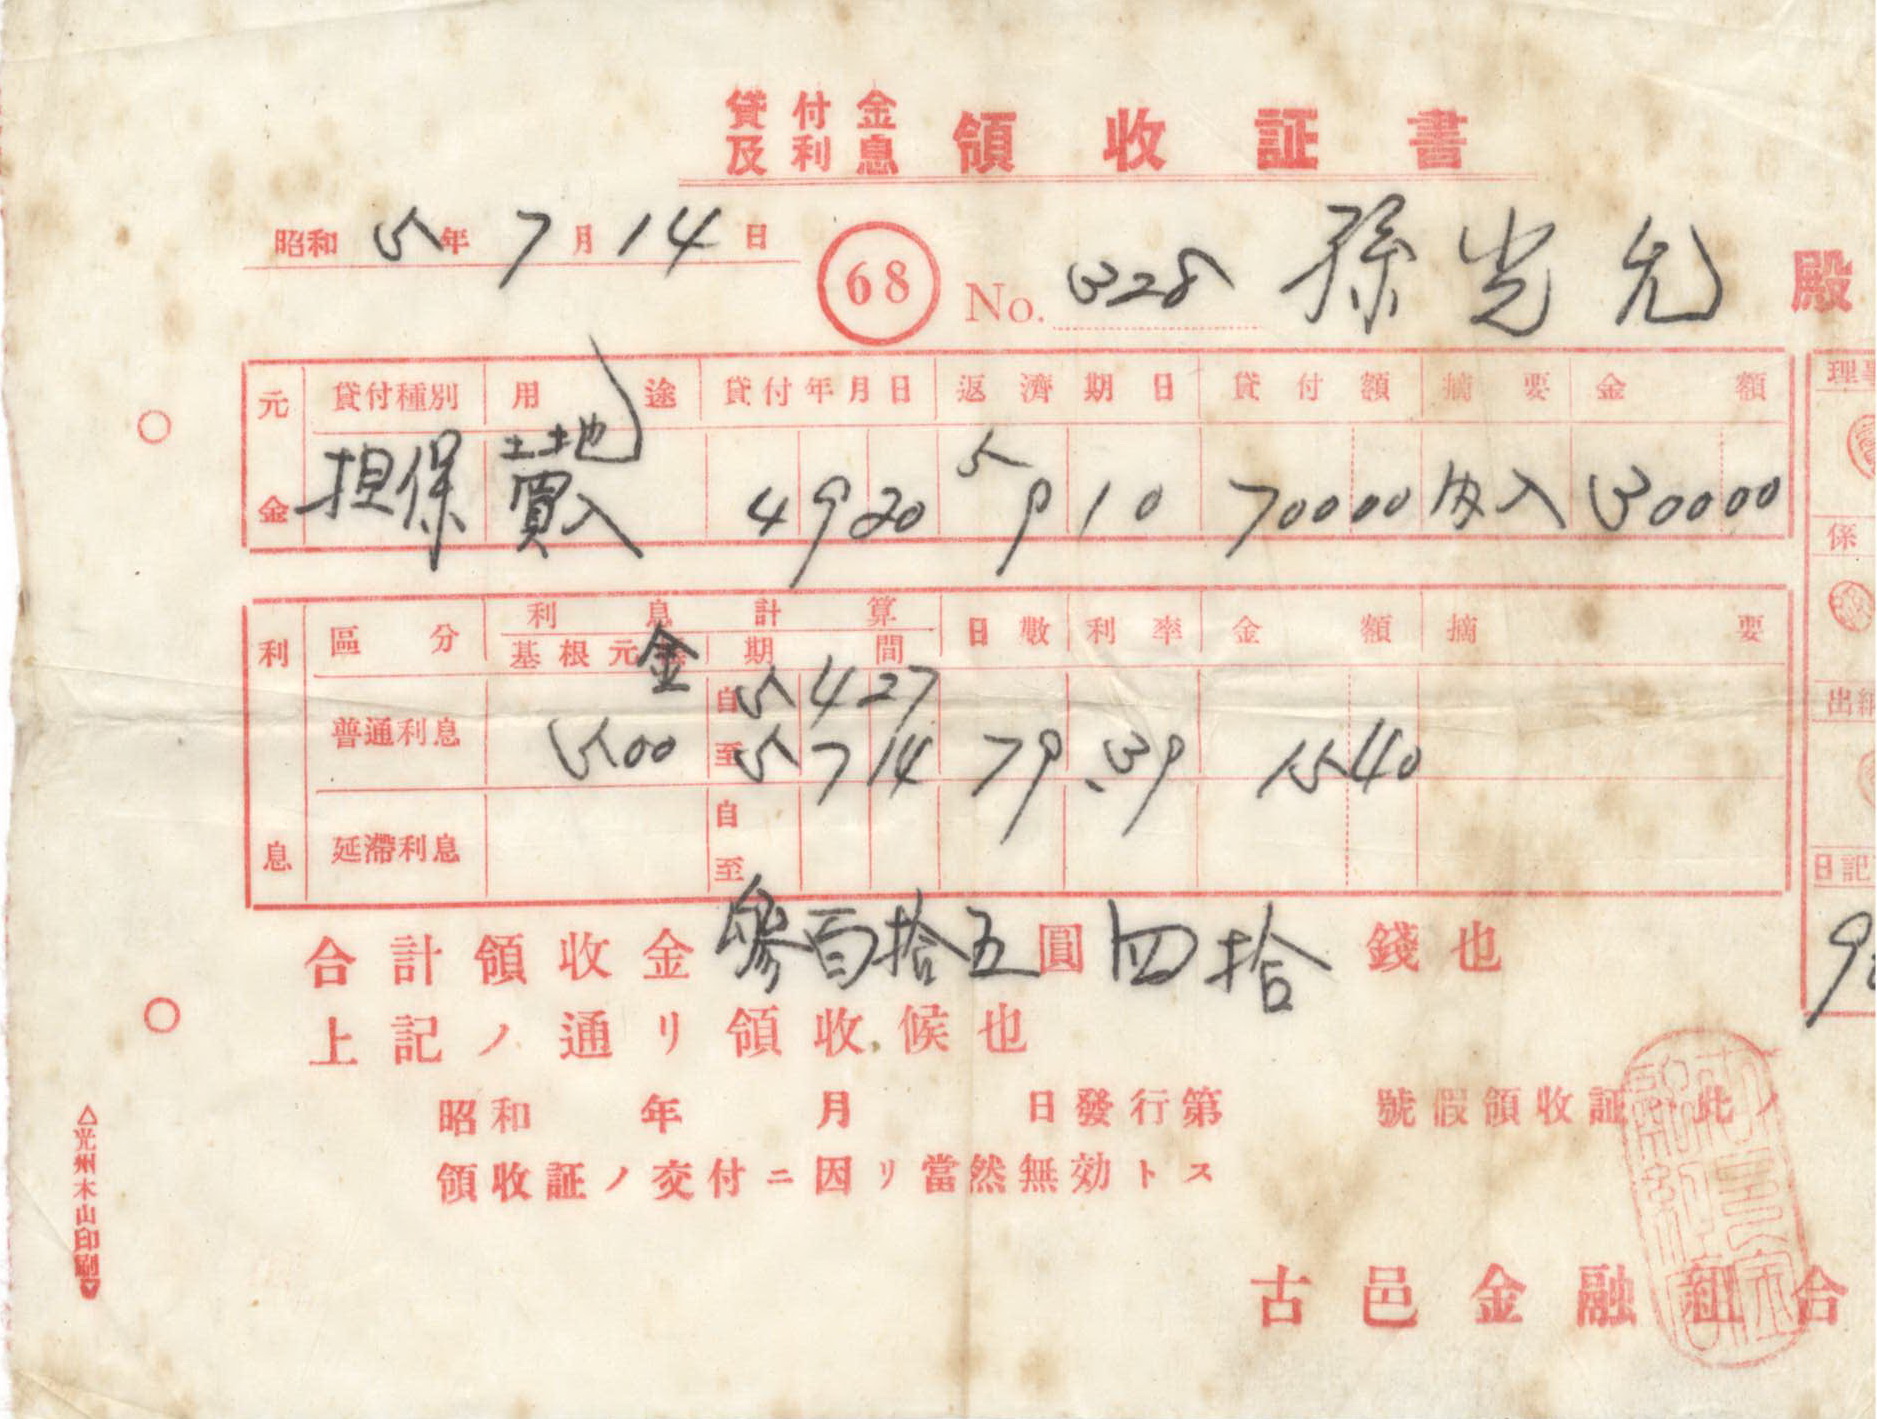 貸付金及利息 領收証書
昭和 5年 7月 14日
68 No. 328 孫光允 殿
元金 貸付種別 用途 貸付年月日 返濟期日 貸付額 摘要 金額
担保 土地買入 4 9 20 5 9 10 70000 内入 30000
利息 區分 利息計算 日數 利率 金額 摘要
基根元金 期間
普通利息 500 自 5 4 27 至 5 7 14 79 .39 1540
延滯利息 自 至
合計領收金 參百拾五圓四拾錢也
上記ノ通リ領收候也
昭和 年 月 日發行第 號假領收証ハ此ノ
領收証ノ交付ニ因リ當然無効トス
古邑金融組合
係
日記
△光州木山印刷▽